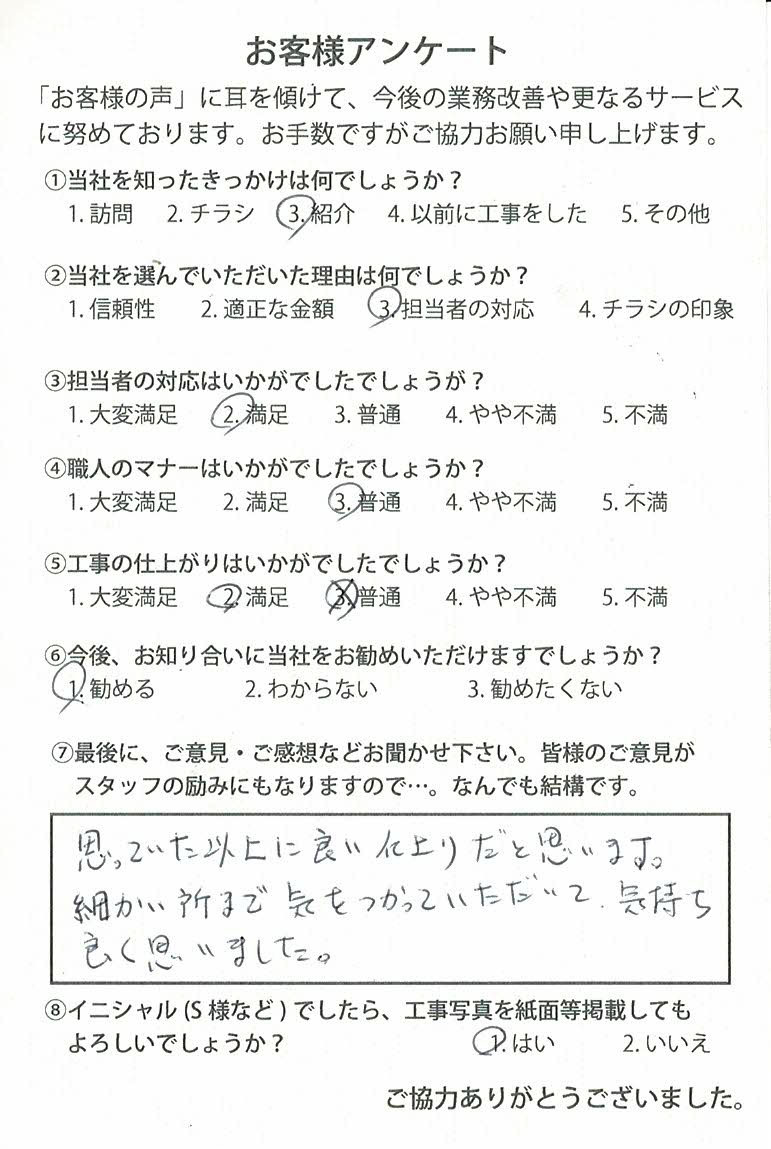 お客様アンケート
「お客様の声」に耳を傾けて、今後の業務改善や更なるサービス
に努めております。お手数ですがご協力お願い申し上げます。
①当社を知ったきっかけは何でしょうか？
1. 訪問 2. チラシ 3. 紹介 4. 以前に工事をした 5. その他
②当社を選んでいただいた理由は何でしょうか？
1. 信頼性 2. 適正な金額 3. 担当者の対応 4. チラシの印象
③担当者の対応はいかがでしたでしょうが？
1. 大変満足 2. 満足 3. 普通 4. やや不満 5. 不満
④職人のマナーはいかがでしたでしょうか？
1. 大変満足 2. 満足 3. 普通 4. やや不満 5. 不満
⑤工事の仕上がりはいかがでしたでしょうか？
1. 大変満足 2. 満足 3. 普通 4. やや不満 5. 不満
⑥今後、お知り合いに当社をお勧めいただけますでしょうか？
1. 勧める 2. わからない 3. 勧めたくない
⑦最後に、ご意見・ご感想などお聞かせ下さい。皆様のご意見が
スタッフの励みにもなりますので…。なんでも結構です。
思っていた以上に良い仕上りだと思います。
細かい所まで気をつかっていただいて、気持ち
良く思いました。
⑧イニシャル(S 様など)でしたら、工事写真を紙面等掲載しても
よろしいでしょうか？ 1. はい 2. いいえ
ご協力ありがとうございました。